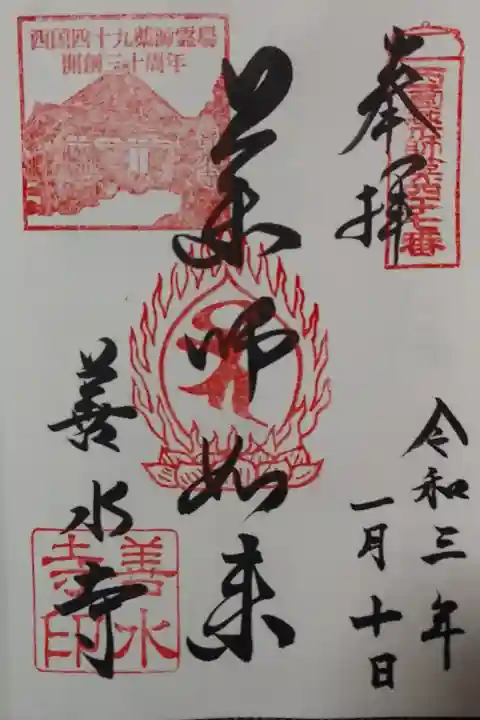 奉拝
西国薬師第四十七番
令和三年
一月十日
薬師如来
西国四十九薬師霊場
開創三十周年
善水寺
善水
寺印